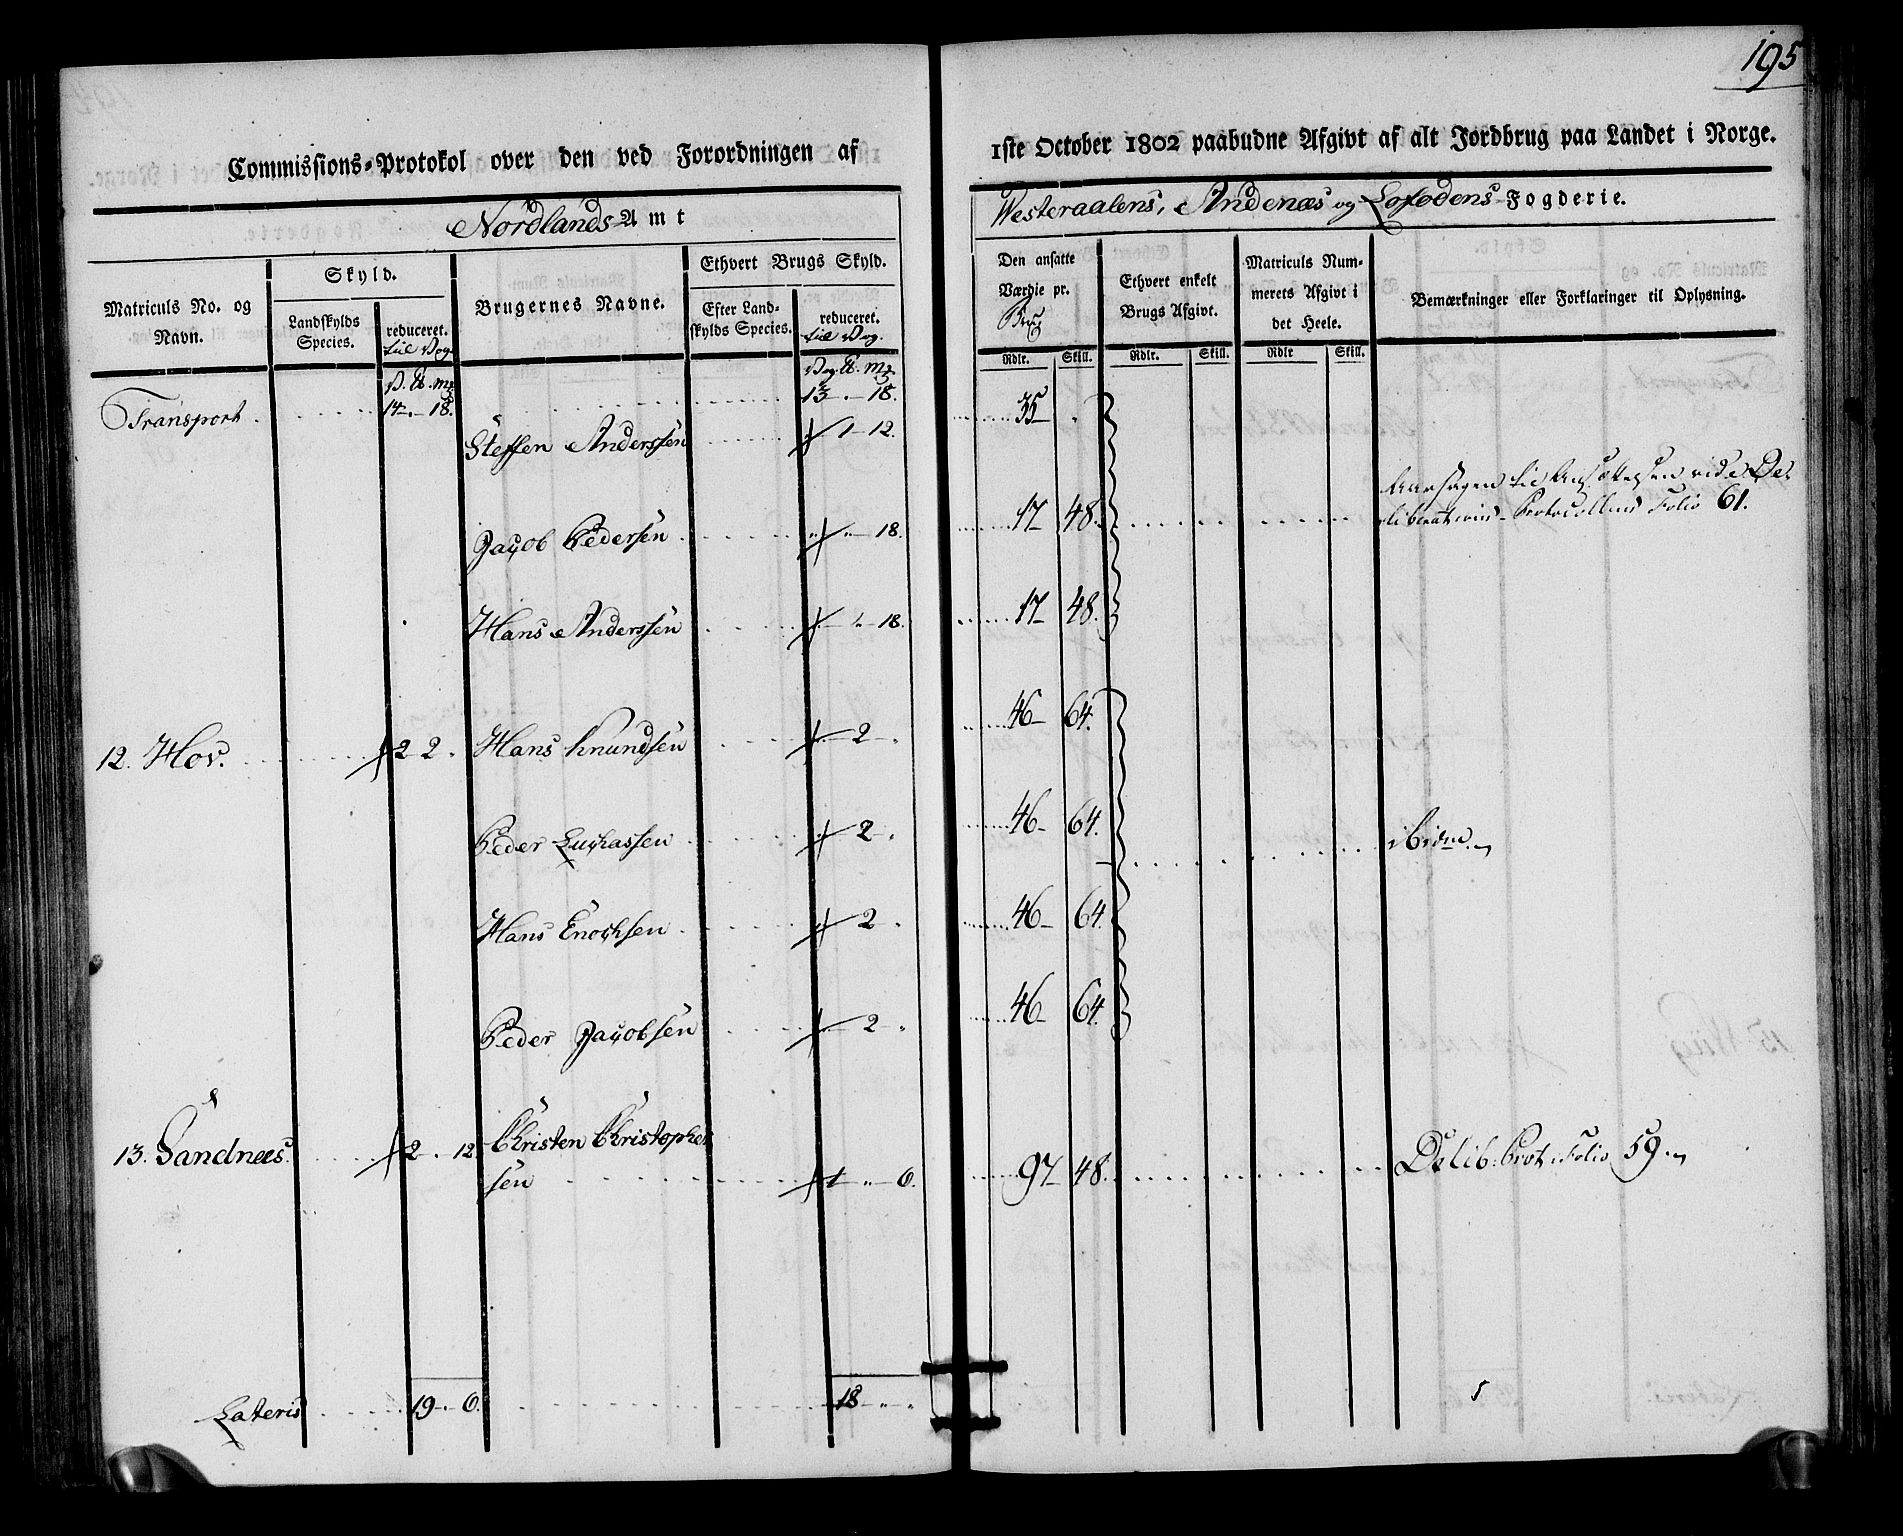 195
Commissions-Protokol over den ved Forordningen af
1ste October 1802 paabudne Afgivt af alt Jordbrug paa Landet i Norge.
Nordlands Amt
Westeraalens, Andenæs og Lofodens Fogderie.
Matriculs No. og Navn.
Skyld.
Landskylds Species.
reduceret. til Vog.
Brugernes Navne.
Ethvert Brugs Skyld.
Efter Landskylds Species.
reduceret. til Vog.
Den ansatte Værdie pr. Brug
Rdlr. Skill.
Ethvert enkelt Brugs Afgivt.
Rdlr. Skill.
Matriculs Nummerets Afgivt i det Heele.
Rdlr Skill.
Bemærkninger eller Forklaringer til Oplysning.
Transport 14 - 18. 13 - 18.
Steffen Anderssen 1 - 12. 35
Jacob Pedersen 18. 17 48. Aarsagen til Ansættelsen vide De-
liberations-Protocollens Folio 61.
Hans Anderssen 18. 17 48.
12. Hov. 2 2 Hans Knundsen 2 46 64.
Peder Luchassen 2 46 64. ibidm
Hans Enochsen 2 46 64
Peder Jacobsen 2 46 64.
13. Sandnees. 2 12 Christen Christopher
sen 1 0. 97 48. Delib: Prot: Folio 59.
Lateris 19 0. 18